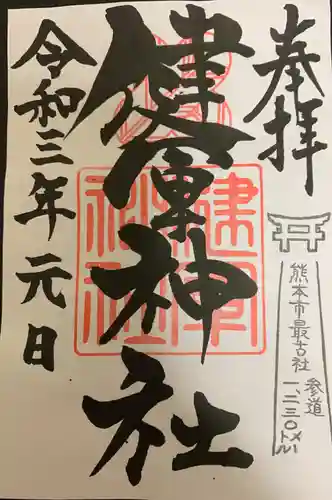 奉拝
健軍神社
令和三年元日
健軍
神社
熊本市最古社
参道
一、二三〇メートル